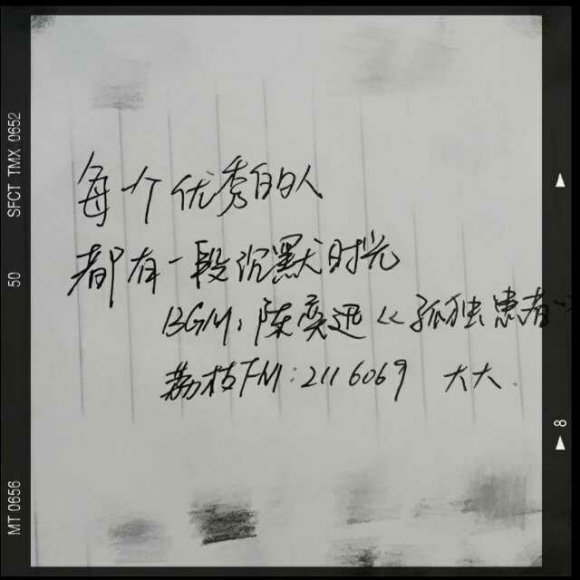 每个优秀的人
都有一段沉默时光
BGM:陈奕迅《孤独患者》
荔枝FM:2116069 大大.
SFCT TMX 0652
50
MT 0656
8